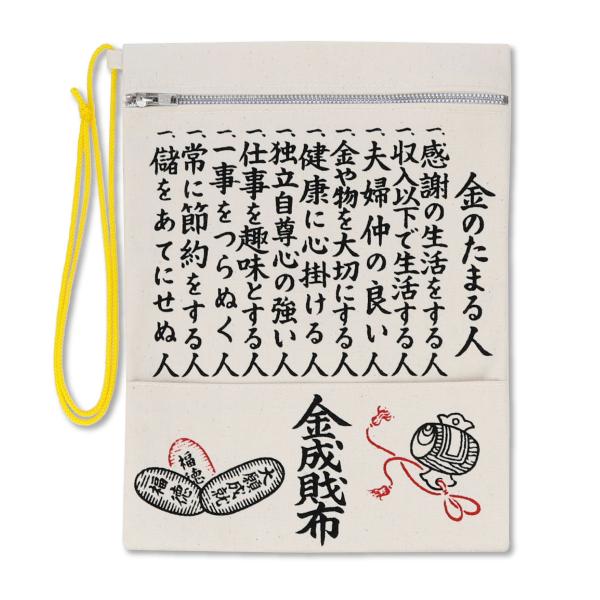 金のたまる人
一、感謝の生活をする人
一、収入以下で生活する人
一、夫婦仲の良い人
一、金や物を大切にする人
一、健康に心掛ける人
一、独立自尊心の強い人
一、仕事を趣味とする人
一、一事をつらぬく人
一、常に節約をする人
一、儲をあてにせぬ人
金成財布
福徳
大願成就